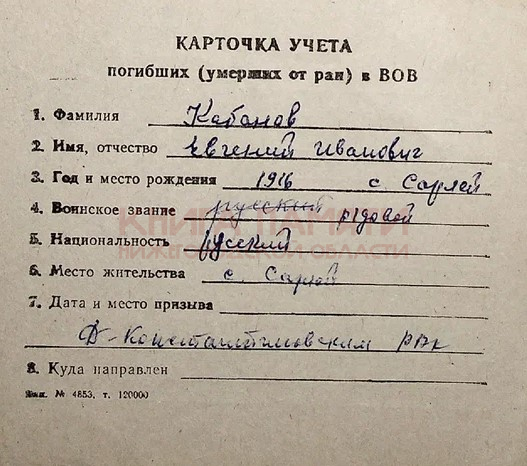 КАРТОЧКА УЧЕТА
погибших (умерших от ран) в ВОВ
1. Фамилия Кабанов
2. Имя, отчество Евгений Иванович
3. Год и место рождения 1916 с. Сарлей
4. Воинское звание русский рядовой
КНИГА ПАМЯТИ
5. Национальность русский
НИЖЕГОРОДСКОЙ ОБЛАСТИ
6. Место жительства с. Сарлей
7. Дата и место призыва
Д-Константиновским РВК
8. Куда направлен
№ 4853, т. 120000